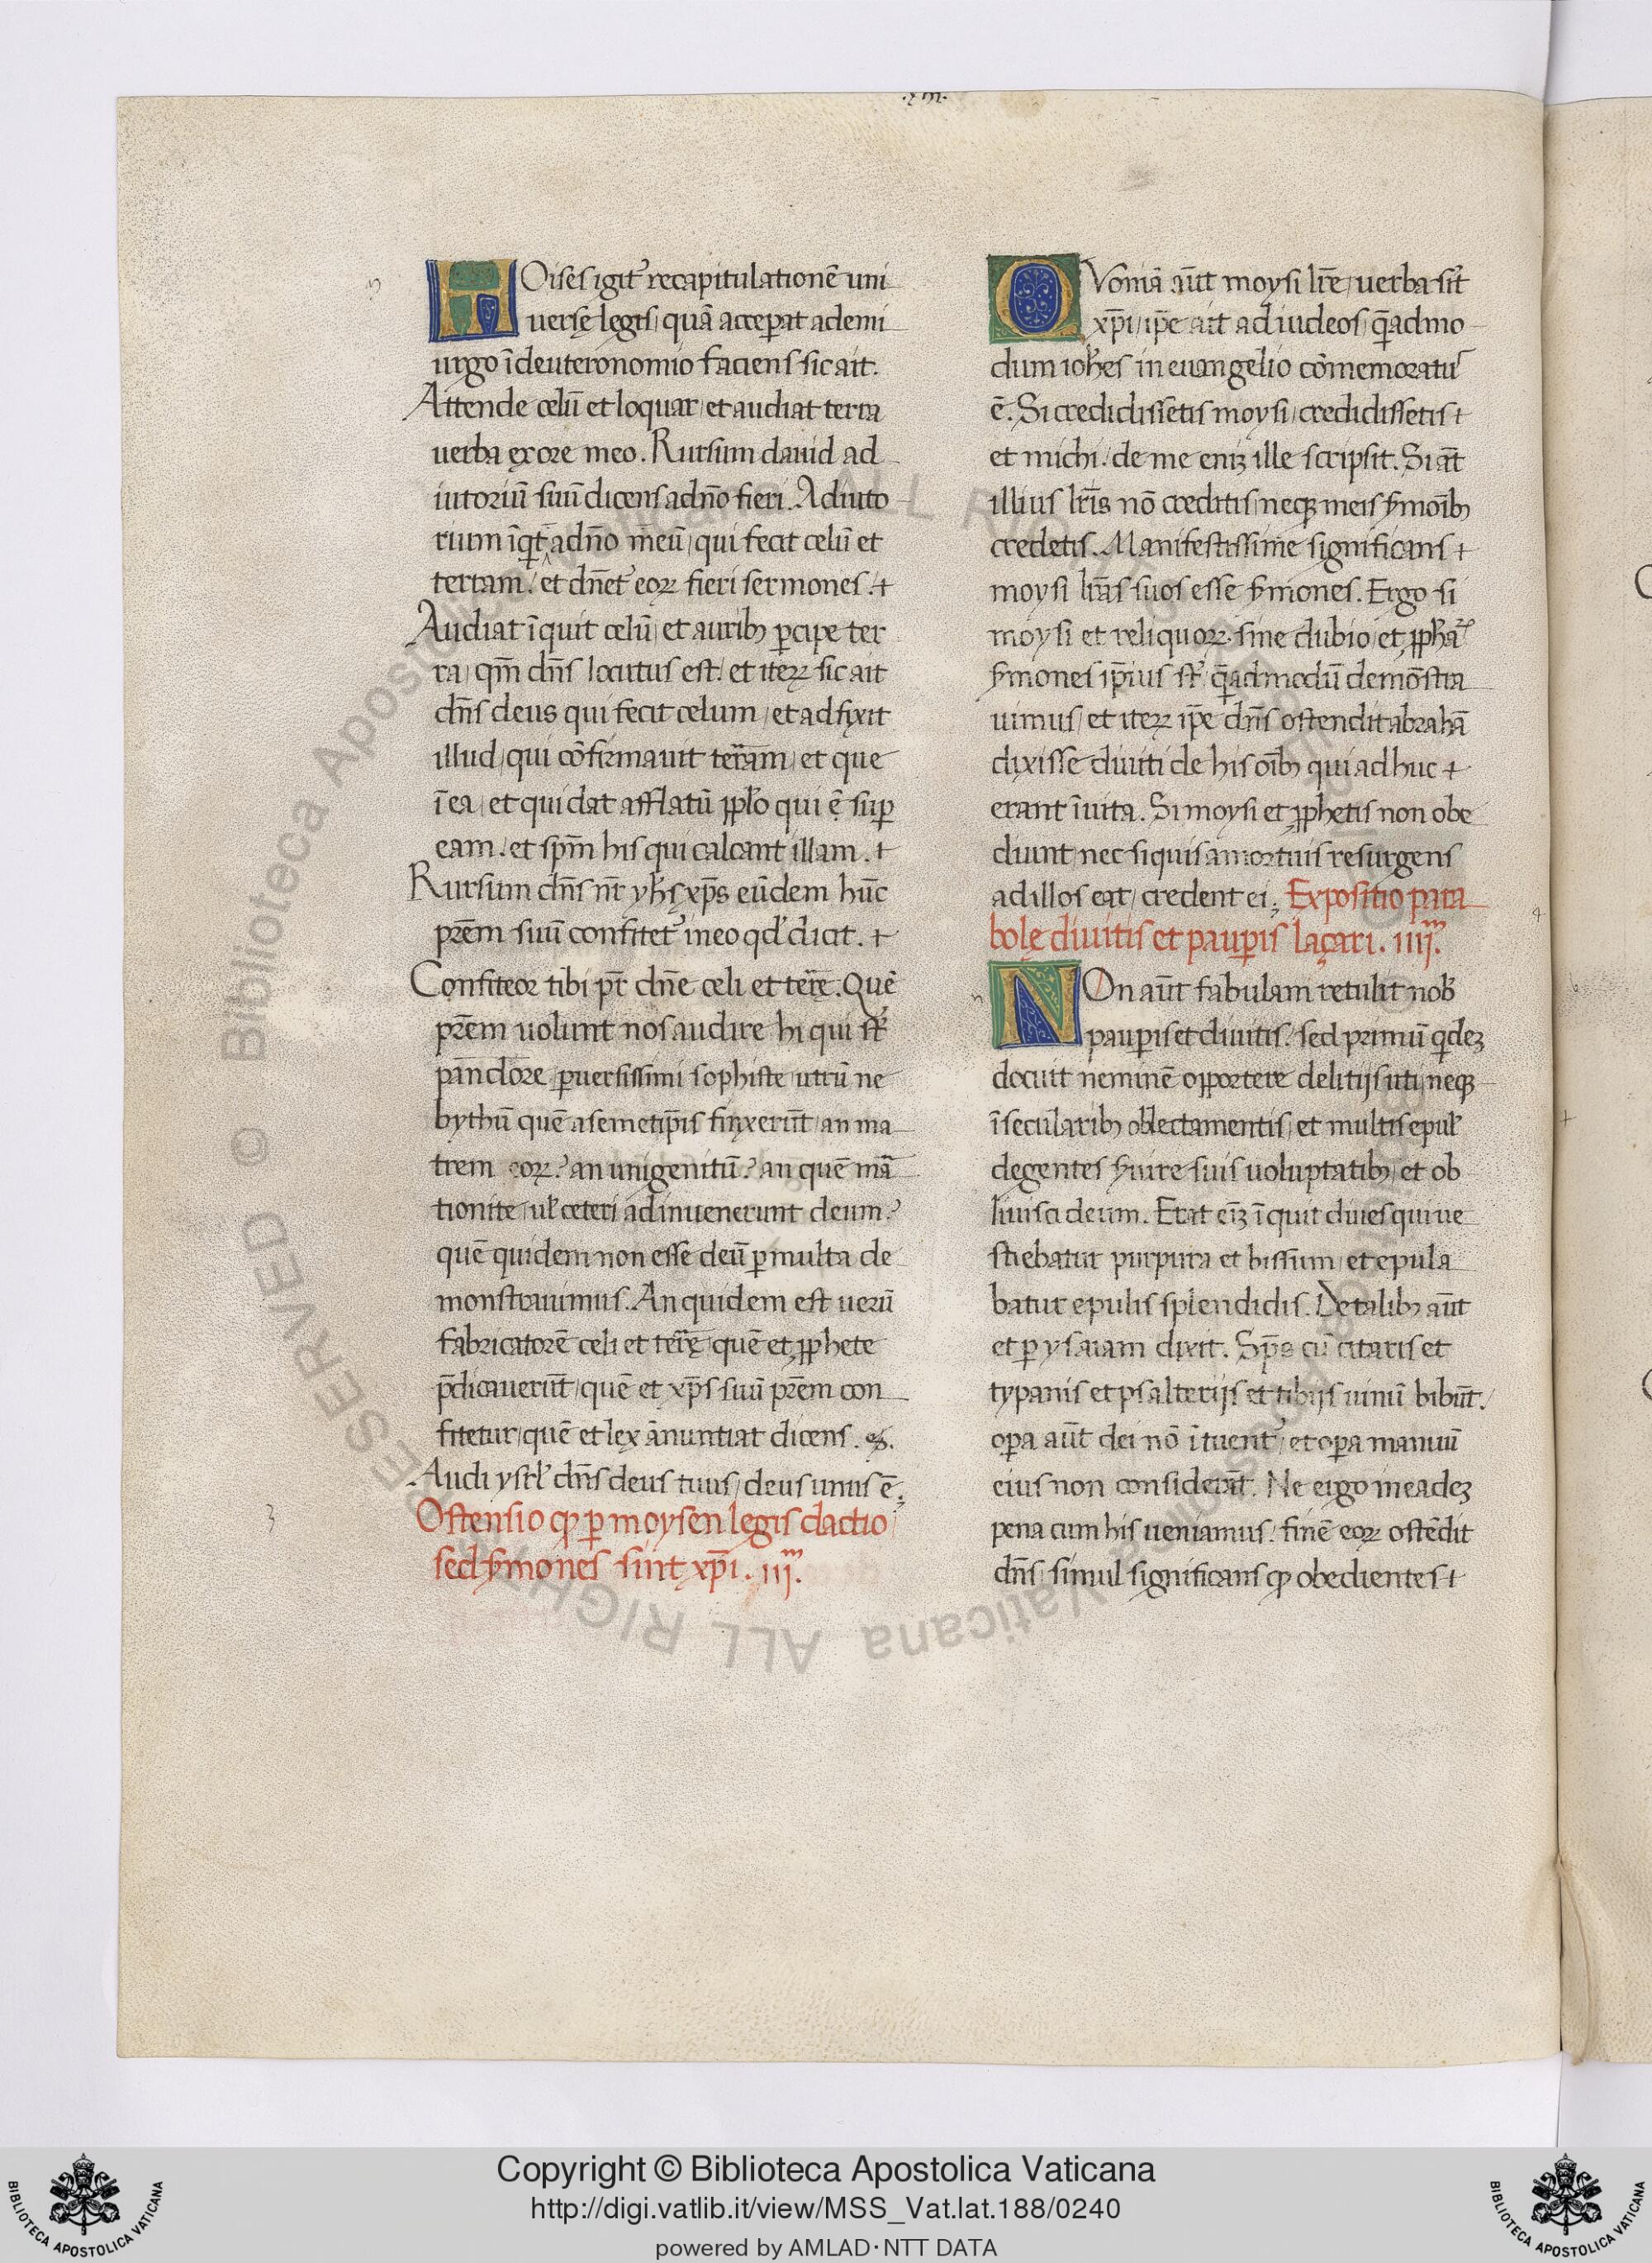 ·xiii·
MOises igit᷑ recapitulationē uni
uersę legis, quā acceꝑat ademi
urgo ī deuteronomio faciens sic ait.
Attende celū et loquar, et audiat terra
uerba ex ore meo. Rursum dauid ad
iutoriū suū dicens adn̄o fieri. Adiuto
rium īqt̄ adn̄o meū, qui fecit celū et
terram. et dn̄et᷑ eoꝝ fieri sermones. +
Audiat īquit celū, et aurib; ꝑcipe ter
ra, qm̄ dn̄s locutus est. et iteꝝ sic ait
dn̄s deus qui fecit celum, et adfixit
illud, qui cōfirmauit terrā̄m, et que
ī ea, et qui dat afflatū pplo qui ē suꝑ
eam. et spm̄ his qui calcant illam. +
Rursum dn̄s nr̄ yh̄s xp̄s eūdem hūc
prēm suū confitet᷑ in eo qđ dicit. +
Confiteor tibi pr̄ dn̄e celi et terrē. Quē
prēm uolunt nos audire hi qui st᷑
pandōre ꝑuersissimi sophiste, utrū ne
bythū quē a semetip̄is finxerūt, an ma
trem eoꝝ? an unigenitū? an quē mar̄
tionite, uł ceteri adinuenerunt deum?
quē quidem non esse deū ꝑ multa de
monstrauimus. An quidem est uerū
fabricatorē celi et terrę, quē et ꝓphete
p̄dicauerūt, quē et xp̄s suū prēm con
fitetur, quē et lex ānuntiat dicens.
Audi ysrł dn̄s deus tuus, deus unus ē;
Ostensio ꝙ ꝑ moysen legis dactio
sed ẜmones sint xp̄i. iij.
QVoniā aūt moysi lrē, uerba sūt
xp̄i, ip̄e ait ad iudeos, q̄admo
dum ioh̄es in euangelio cōmemoratu᷑
ē. Si credidissetis moysi, credidissetis +
et michi. de me eniꝫ ille scripsit. Si at̄
illius lrīs nō creditis, neqꝫ meis ẜmoīb;
credetis. Manifestissime significans +
moysi lrās suos esse ẜmones. Ergo si
moysi et reliquoꝝ sine dubio et ꝓph̄aꝝ
ẜmones ip̄ius st᷑ q̄admodū demōstra
uimus, et iteꝝ ip̄e dn̄s ostendit abrahā
dixisse diuiti de his oīb; qui ad huc +
erant ī uita. Si moysi et ꝓphetis non obe
diunt, nec si quis a mortuis resurgens
ad illos eat, credent ei; Expositio para
bolę diuitis et pauꝑis laçari. iiij.
NOn aūt fabulam retulit nob᷑
pauꝑis et diuitis. sed primū qdeꝫ
docuit neminē opportere delitijs uti, neqꝫ
ī secularib; oblectamentis, et multis epuł
degentes ẜuire suis uoluptatib; et ob
liuisci deum. Erat eīꝫ īquit diues qui ue
stiebatur purpura et bissum, et epula
batur epulis splendidis. De talib; aūt
et ꝑ ysaiam dixit. Sp̄s cū citaris et
typanis et psalterijs et tibijs uinū bibūt.
oꝑa aūt dei nō ītuent᷑, et oꝑa manuū
eius non considerāt. Ne ergo in eadeꝫ
pena cum his ueniamus. finē eoꝝ ostēdit
dn̄s, simul significans ꝙ obedientes +
Copyright © Biblioteca Apostolica Vaticana
http://digi.vatlib.it/view/MSS_Vat.lat.188/0240
powered by AMLAD·NTT DATA